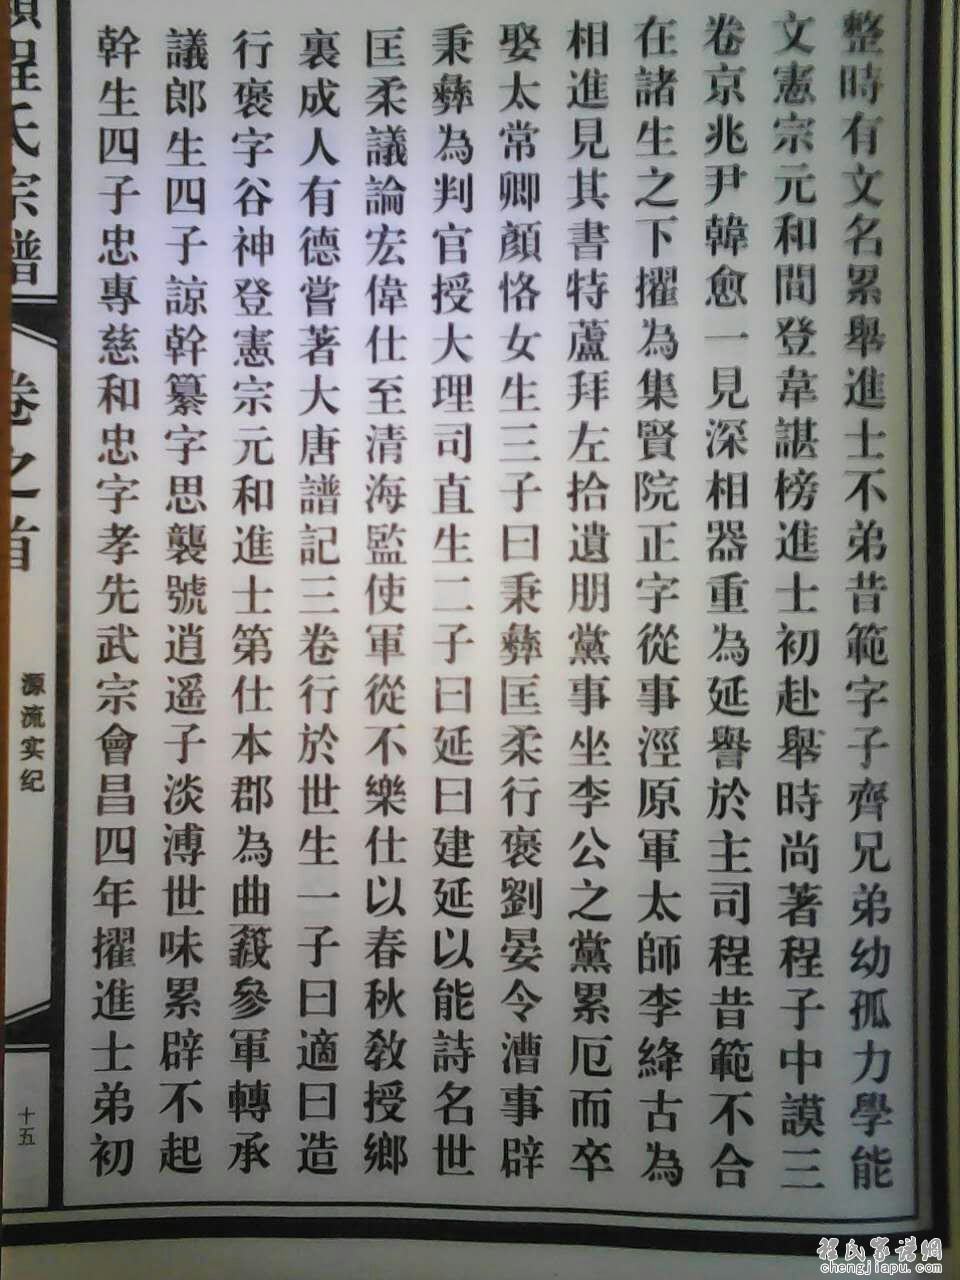 整時有文名累舉進士不弟昔範字子齊兄弟幼孤力學能
文憲宗元和間登韋諶榜進士初赴舉時尚著程子中謨三
卷京兆尹韓愈一見深相器重為延譽於主司程昔範不合
在諸生之下擢為集賢院正字從事涇原軍太師李絳古為
相進見其書特蘆拜左拾遺朋黨事坐李公之黨累厄而卒
娶太常卿顏恪女生三子曰秉彝匡柔行褒劉晏令漕事辟
秉彝為判官授大理司直生二子曰延曰建延以能詩名世
匡柔議論宏偉仕至清海監使軍從不樂仕以春秋教授鄉
裏成人有德嘗著大唐譜記三卷行於世生一子曰適曰造
行褒字谷神登憲宗元和進士第仕本郡為曲義參軍轉承
議郎生四子諒幹纂字思襲號逍遥子淡溥世味累辟不起
幹生四子忠專慈和忠字孝先武宗會昌四年擢進士弟初
程氏宗譜
卷之首
源流实纪
十五
程氏家谱网
chengjiapu.com